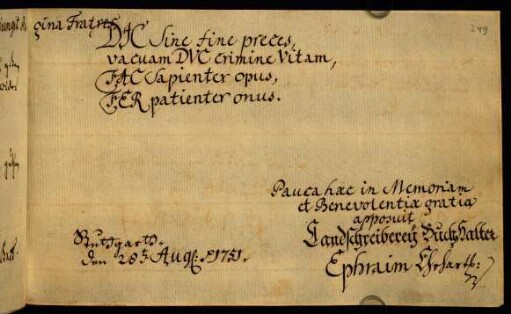 gina Fratres
249
DIC Sine fine preces,
vacuam DVC crimine vitam,
FAC Sapienter opus,
FER patienter onus.
Pauca hæc in Memoriam
et Benevolentiæ gratia
apposuit
Landschreiberey Buchhalter
Stuttgardt.
den 28t Aug: 1751.
Ephraim